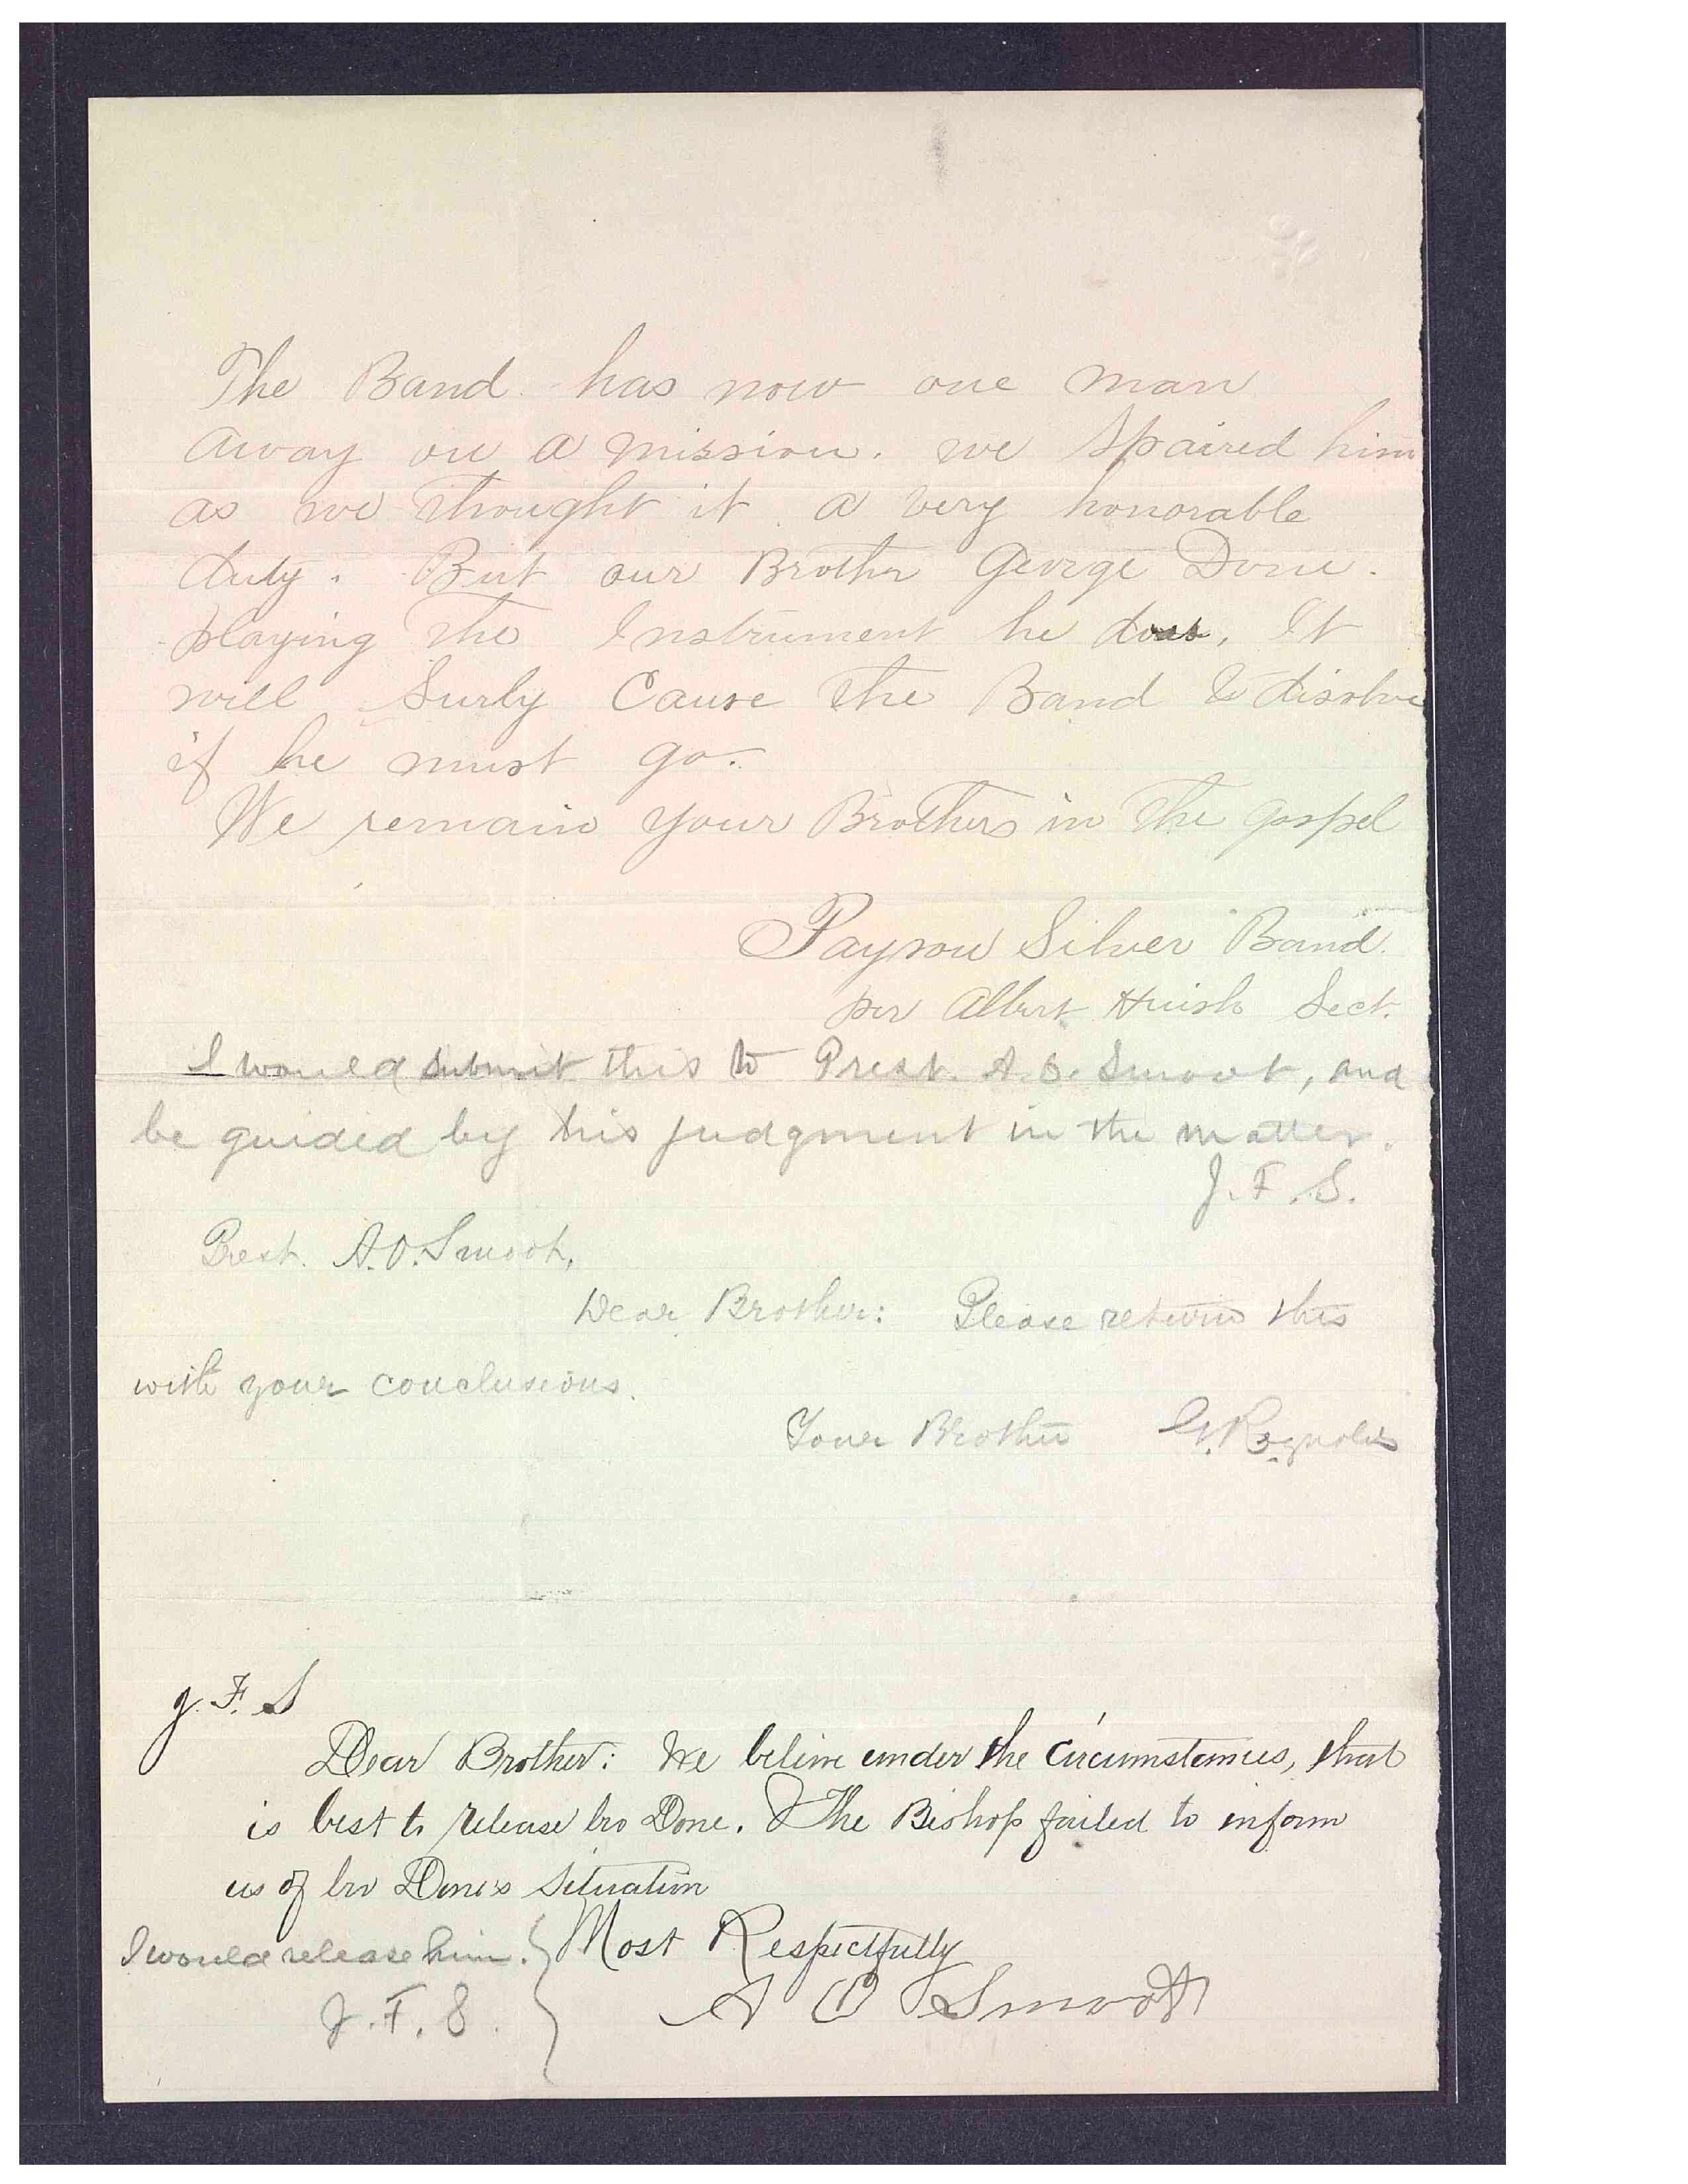 The Band has now one man
away on a mission. we spaired him
as we thought it a very honorable
duty. But our Brother George Done.
playing the Instrument he does, It
will Surly Cause the Band to disolve
if he must go.
We remain your Brothers in the gospel
Payson Silver Band.
per Albert Huish Sect.
I would submit this to Prest. A.O. Smoot, and
be guided by his judgment in the matter.
J.F.S.
Prest. A.O. Smoot,
Dear Brother: Please return this
with your conclusions.
Your Brother G. Reynolds
J.F.S
Dear Brother: We belive under the Circumstances, that
is best to release bro Done. The Bishop failed to inform
us of bro Done's Situation
Most Respectfully
A O Smoot
I would release him.
J.F.S.